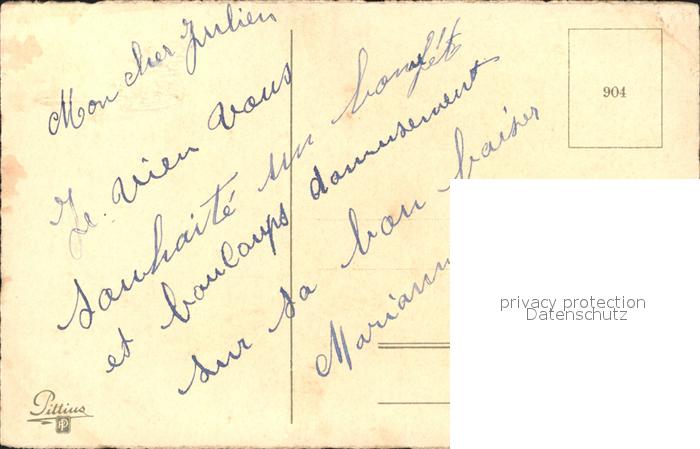 Mon cher Julien
Je vien vous
souhaité un bonfét
et boucoups damusement
sur sa bon baiser
Mariann
904
privacy protection
Datenschutz
Pittius